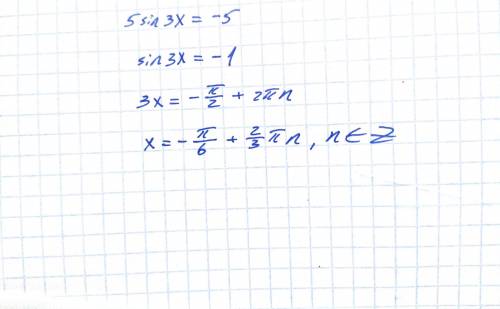 5 sin 3x = -5
sin 3x = -1
3x = -π/2 + 2πn
x = -π/6 + 2/3 πn, n ∈ Z